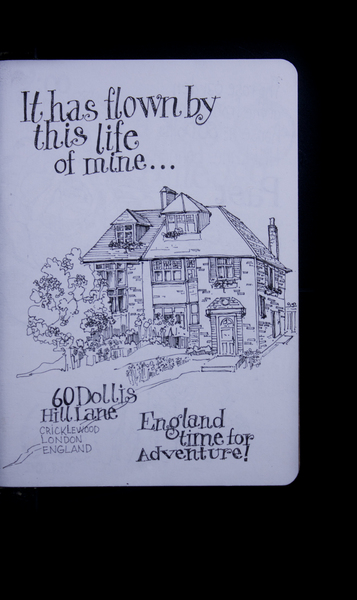 It has flown by
this life
of mine...
60 Dollis
Hill Lane
CRICKLEWOOD
LONDON
ENGLAND
England
time for
Adventure!